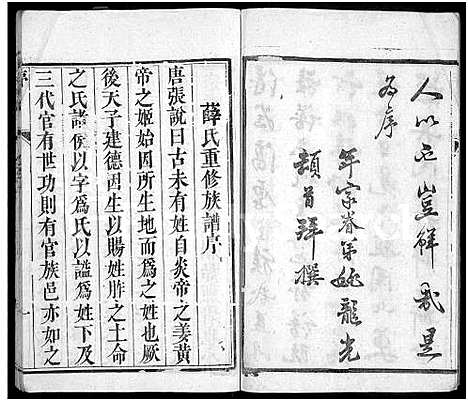 人以
為序
年宗眷弟姚龍光
頓首拜撰
薛氏重修族譜序
唐張說曰古未有姓自炎帝之姜黃
帝之姬始因所生地而為之也厥
後天子建德因生以賜姓胙之土命
之氏諸侯以字爲氏以謚爲姓下及
三代官有世功則有官族邑亦如之
序
一